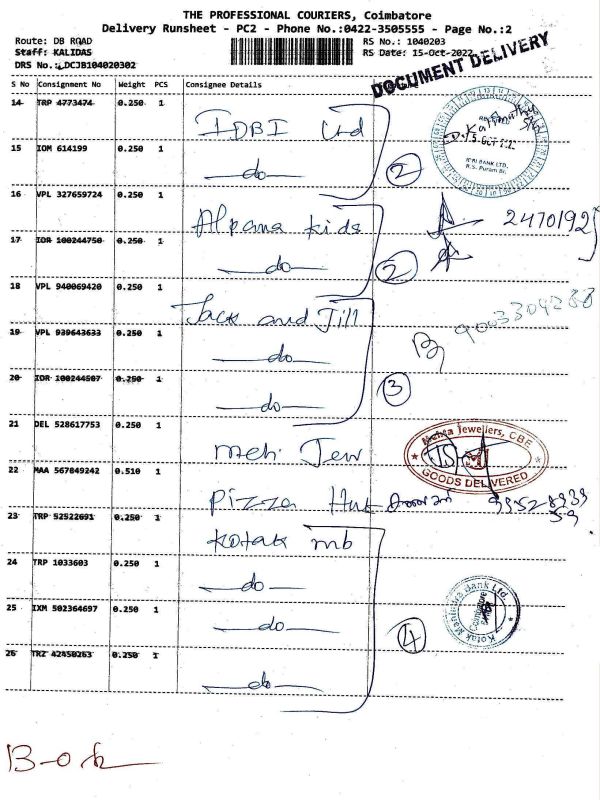 THE PROFESSIONAL COURIERS, Coimbatore
Delivery Runsheet - PC2 - Phone No.:0422-3505555 - Page No.:2
Route: DB ROAD
RS No.: 1040203
Staff: KALIDAS
RS Date: 15-Oct-2022
DRS No.: DCJB104020302
DOCUMENT DELIVERY
S No Consignment No Weight PCS Consignee Details
14 TRP 4773474 0.250 1 IDBI Ltd
15 IOM 614199 0.250 1 do
2
IDBI BANK LTD.
R.S. Puram Br.
16 VPL 327659724 0.250 1 Alpana kids
2470192
17 IDR 100244750 0.250 1 do
2
18 VPL 940069420 0.250 1 Jack and Jill
9003304288
19 VPL 939643633 0.250 1 do
20 IDR 100244507 0.250 1 do
3
21 DEL 528617753 0.250 1 meh Jew
Mehta Jewellers, CBE
GOODS DELIVERED
22 MAA 567849242 0.510 1 Pizza Hut
23 TRP 52522691 0.250 1 Kotak mb
24 TRP 1033603 0.250 1 do
25 IXM 502364697 0.250 1 do
4
Kotak Mahindra Bank Ltd.
Coimbatore
26 TRZ 42450263 0.250 1 do